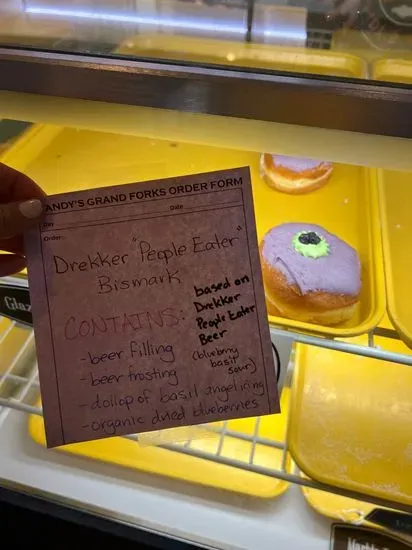 ANDY'S GRAND FORKS ORDER FORM
Day
Date
Order:
Drekker "People Eater"
Bismark
CONTAINS:
-beer filling
-beer frosting
-dollop of basil angelicing
-organic dried blueberries
based on
Drekker
People Eater
Beer
(blueberry
basil
sour)
Glaz